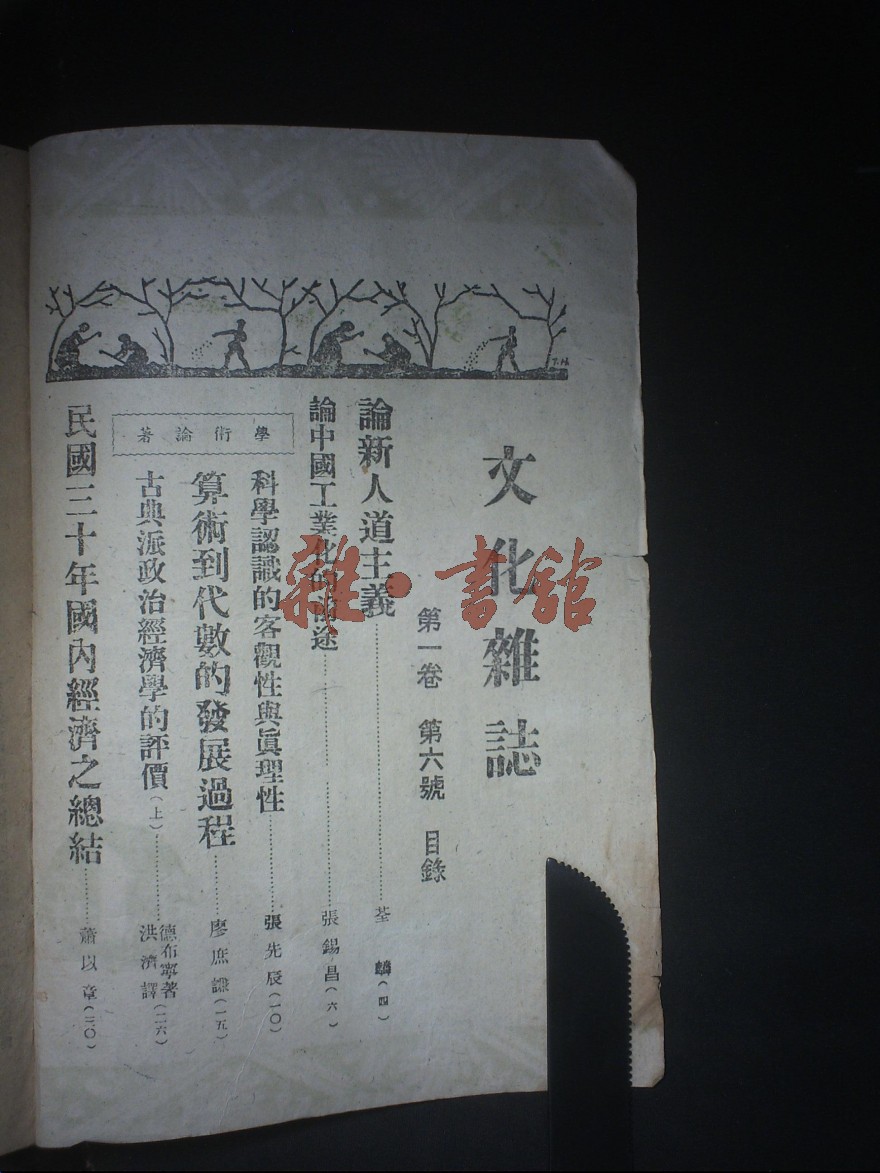 文化雜誌
第一卷 第六號 目錄
論新人道主義……荃麟(四)
論中國工業化的前途……張錫昌(六)
學術論著
科學認識的客觀性與眞理性……張先辰(一〇)
算術到代數的發展過程……廖庶謙(一五)
古典派政治經濟學的評價(上)……德布寧著
洪濟譯(二六)
民國三十年國內經濟之總結……蕭以章(三〇)
雜·書舘